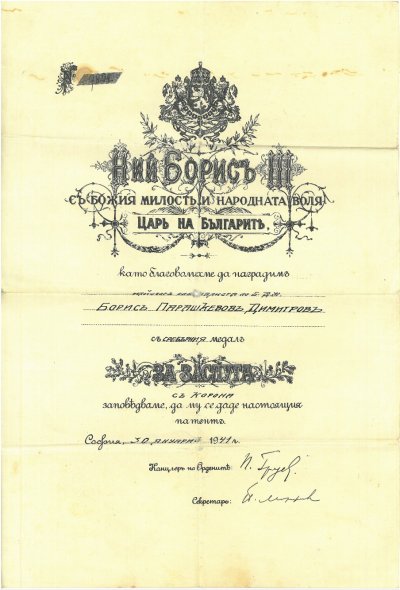 Ний Борисъ III
съ Божия милость и народната воля
Царь на Българитѣ,
като благоволихме да наградимъ
Борисъ Парашкевовъ Димитровъ
съ сребърния медалъ
За Заслуга
съ корона
заповѣдваме, да му се даде настоящия
патентъ.
София, 30 януарий 1941 г.
Канцлеръ на Орденитѣ:
Секретарь: